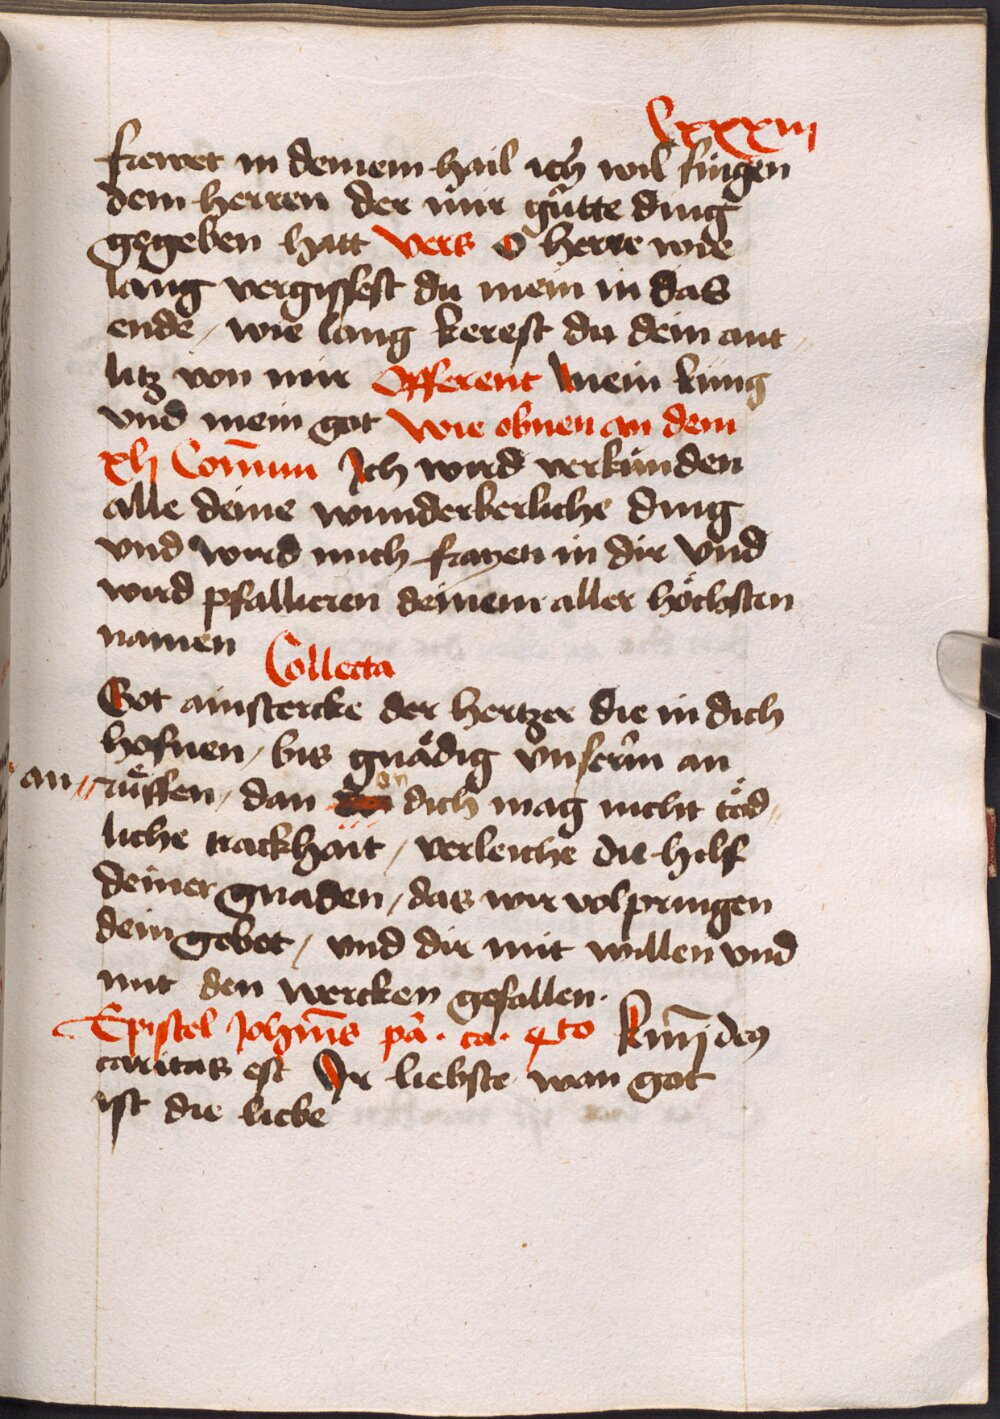 lxxxiii
frewet in deinem hail ich wil singen
dem herren der mir gůtte ding
gegeben hatt Vers O herre wie
lang vergissest du mein in das
ende / wie lang kerest du dein ant
litz von mir Offerent Mein küng
vnd mein got Wie obnen an dem
xlj Com̄un Ich wird verkünden
alle deine wunderberliche ding
vnd wird mich frayen in dir vnd
wird psallieren deinem aller höchsten
namen
Collecta
Got ain stercke der hertzer die in dich
hofnen / bis gnädig vnserm an
an // rüffen / dan on dich mag nicht töd
liche krackhait / verleiche du hilf
deiner gnaden / das wir volpringen
dein gebot / vnd dir mit willen vnd
mit den wercken gefallen.
Epistel Joh̄nis p̄a. ca. 4to Km̄j deus
caritas est Ir liebste wan got
ist die liebe